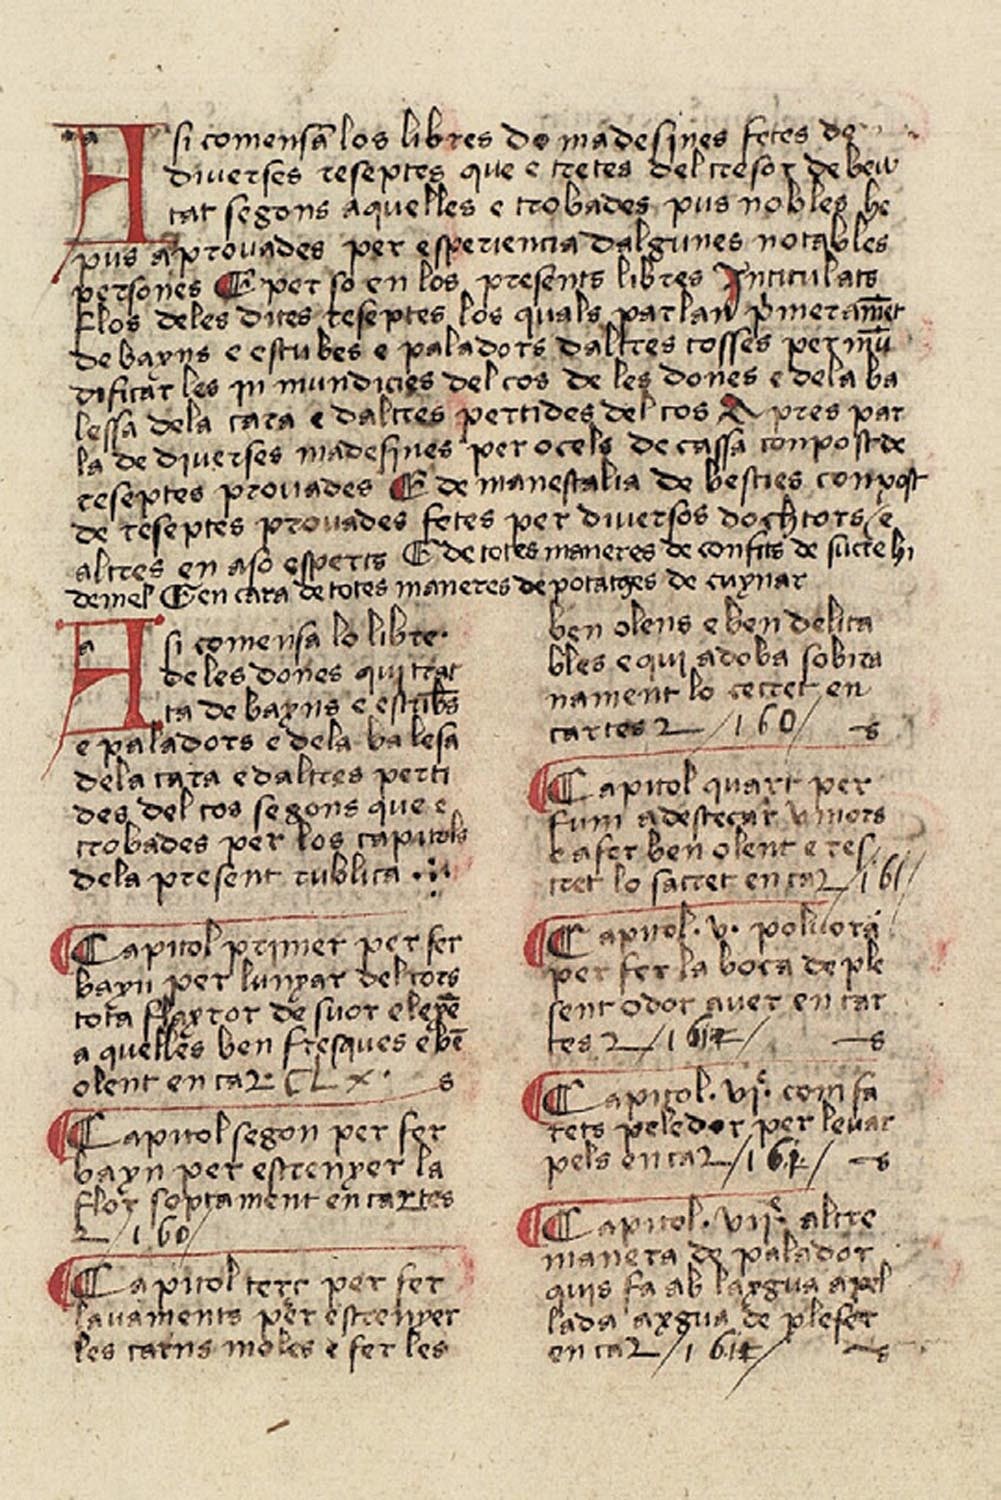 A si comensa los libres de madesines fetes de
diverses reseptes que e tretes del tresor de beu
tat segons aquelles e trobades pus nobles he
pus aprouades per esperiencia dalgunes notables
persones E per so en los presents libres Intitulats
Flos deles dites reseptes los quals parlan primerament
de bayns e estubes e paladors daltres cosses per mun
dificar les inmundicies del cos de les dones e dela ba
lessa dela cara e daltres pertides del cos Apres par
la de diverses madesines per ocels de cassa conpost de
reseptes prouades E de manescalia de besties conpost
de reseptes prouades fetes per diversos dochtors e
altres en aso esperts E de totes maneres de confits de sucre hi
de mel E en cara de totes maneres de potatges de cuynar
A si comensa lo libre
de les dones qui trac
ta de bayns e estubs
e paladors e dela balesa
dela cara e daltres perti
des del cos segons que e
trobades per los capitols
dela present rublica
Capitol primer per fer
bayn per lunyar del cors
tota flayror de suor e
aquelles ben fresques e be
olent en car CLX s
Capitol segon per fer
bayn per estrenyer la
flor en cartes
2 /160/
Capitol terc per fer
lauaments per estrenyer
les carns moles e fer les
ben olens e ben delita
bles e qui adoba sobira
nament lo cecret en
cartes 2 /160/ s
Capitol quart per
fum a destecar vmors
e a fer ben olent e res
tret lo sacret en ca2 /161/
Capitol .v. poluora
per fer la boca de ple
sent odor auer en car
tes 2 /161/ s
Capitol .vi. com fa
rets peledor per leuar
pels en ca2 /161/ s
Capitol .vii. altre
manera de palador
quis fa ab laxgua apel
lada axgua de plefer
en ca2 /161/ s